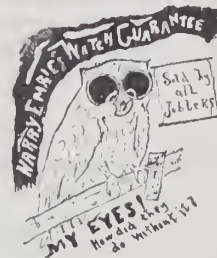 HARRY EMRIC'S WATCH GUARANTEE
Sold by
all
Jobbers
MY EYES!
How did they
do without it?